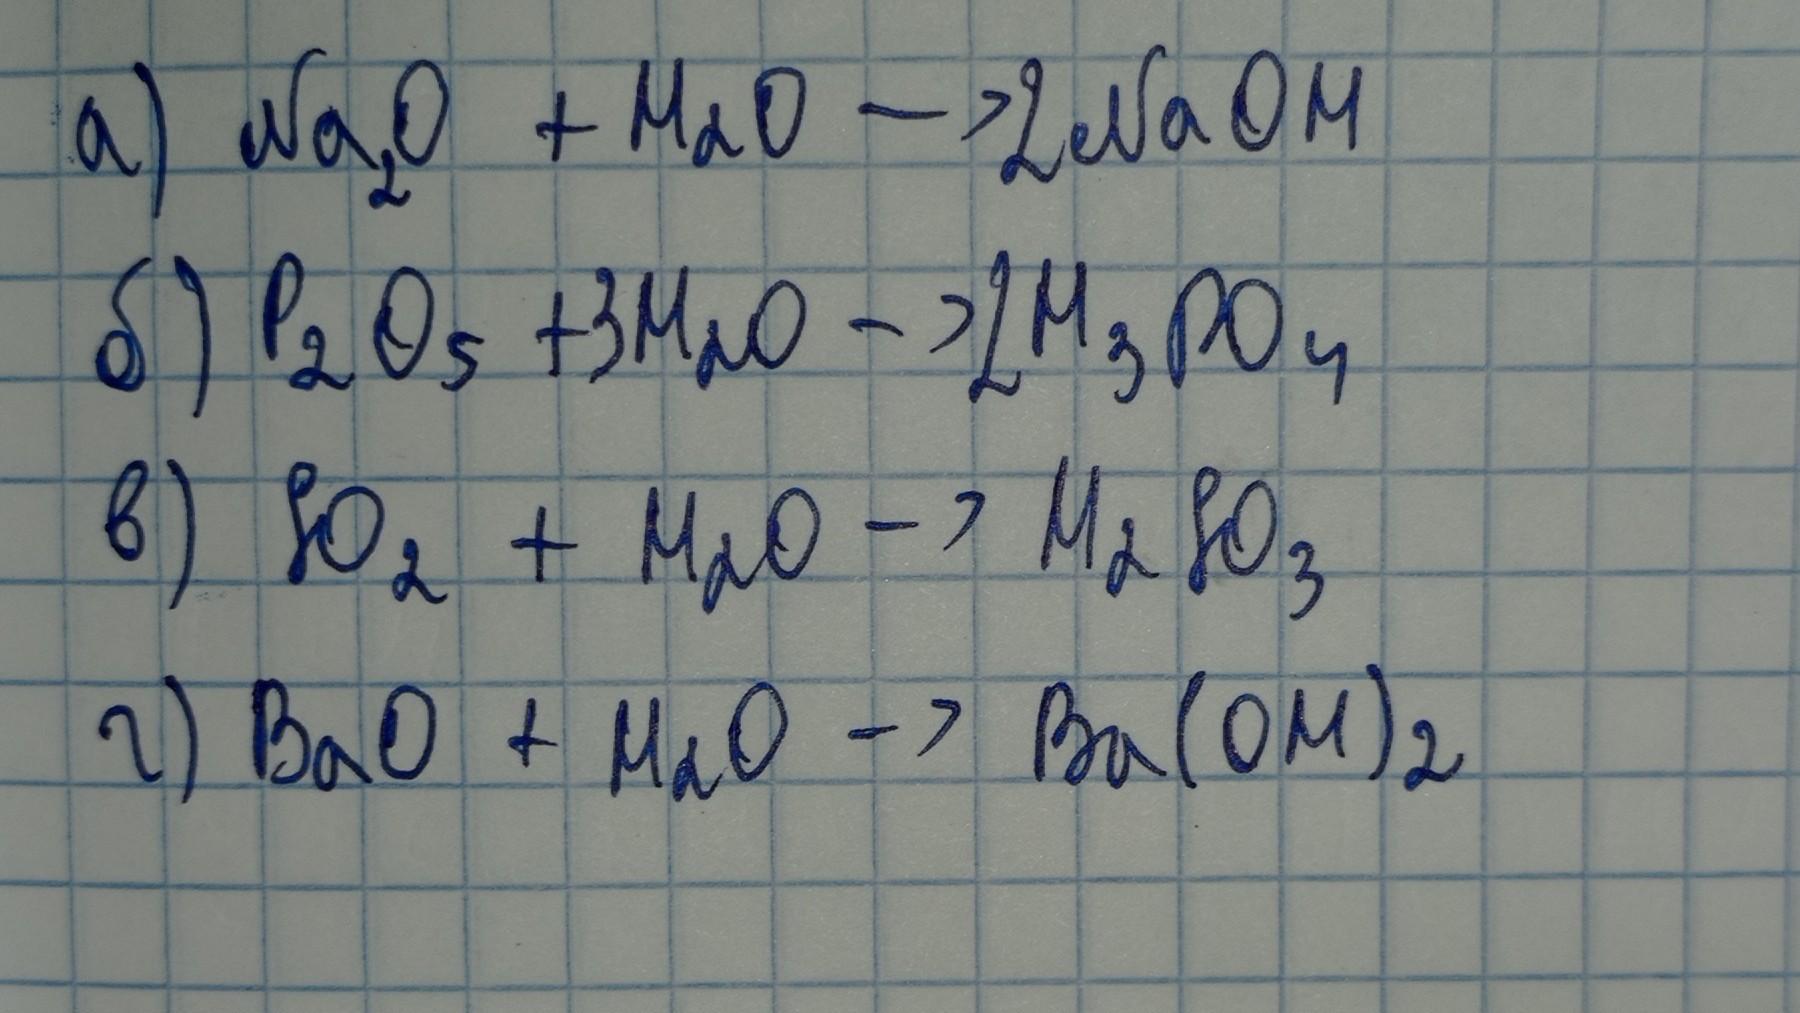 а) Na₂O + H₂O –> 2NaOH
б) P₂O₅ + 3H₂O –> 2H₃PO₄
в) SO₂ + H₂O –> H₂SO₃
г) BaO + H₂O –> Ba(OH)₂